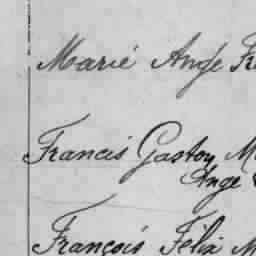 Marié Ange Fr
Francis Gaston M
Ange
François Félix M